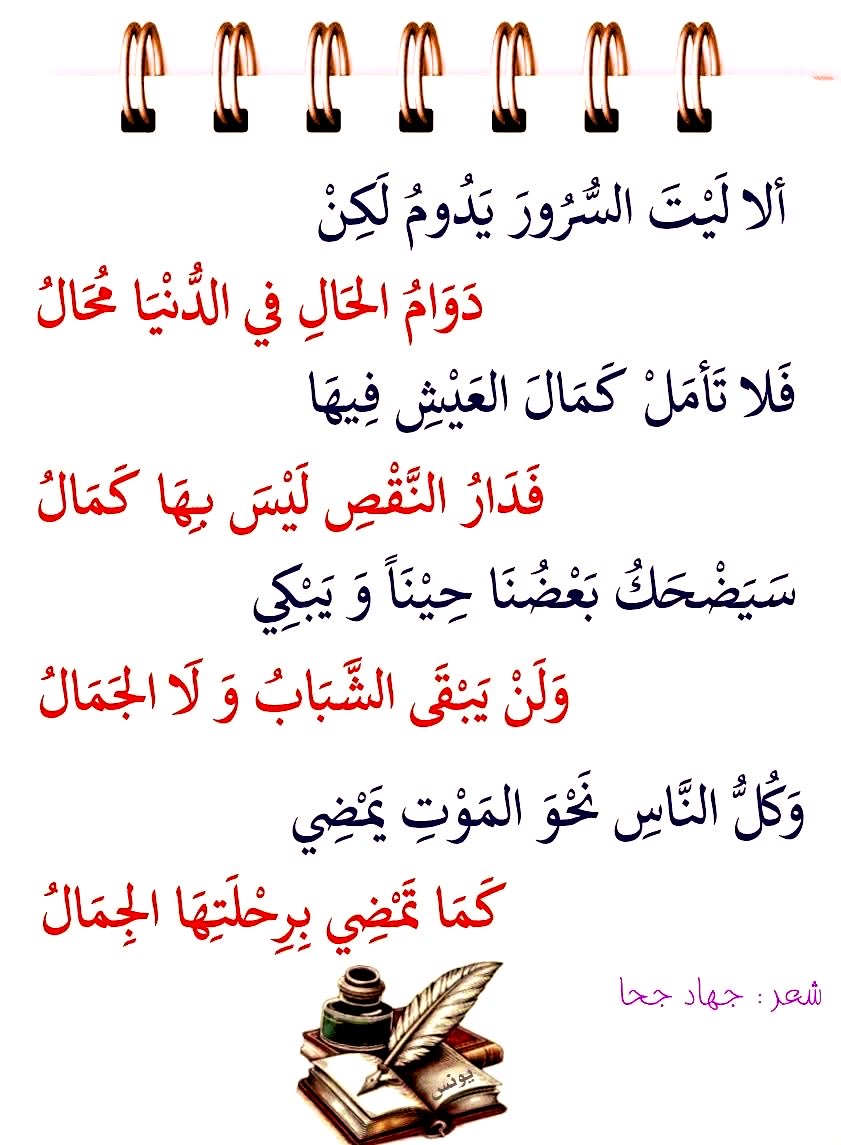 ألا لَيْتَ السُّرُورَ يَدُومُ لَكِنْ
دَوَامُ الحَالِ في الدُّنْيَا مُحَالُ
فَلا تَأمَلْ كَمَالَ العَيْشِ فِيهَا
فَدَارُ النَّقْصِ لَيْسَ بِهَا كَمَالُ
سَيَضْحَكُ بَعْضُنَا حِيْنَاً وَ يَبْكِي
وَلَنْ يَبْقَى الشَّبَابُ وَ لَا الجَمَالُ
وَكُلُّ النَّاسِ نَحْوَ المَوْتِ يَمْضِي
كَمَا تَمْضِي بِرِحْلَتِهَا الجِمَالُ
شعر : جهاد جحا
يونس